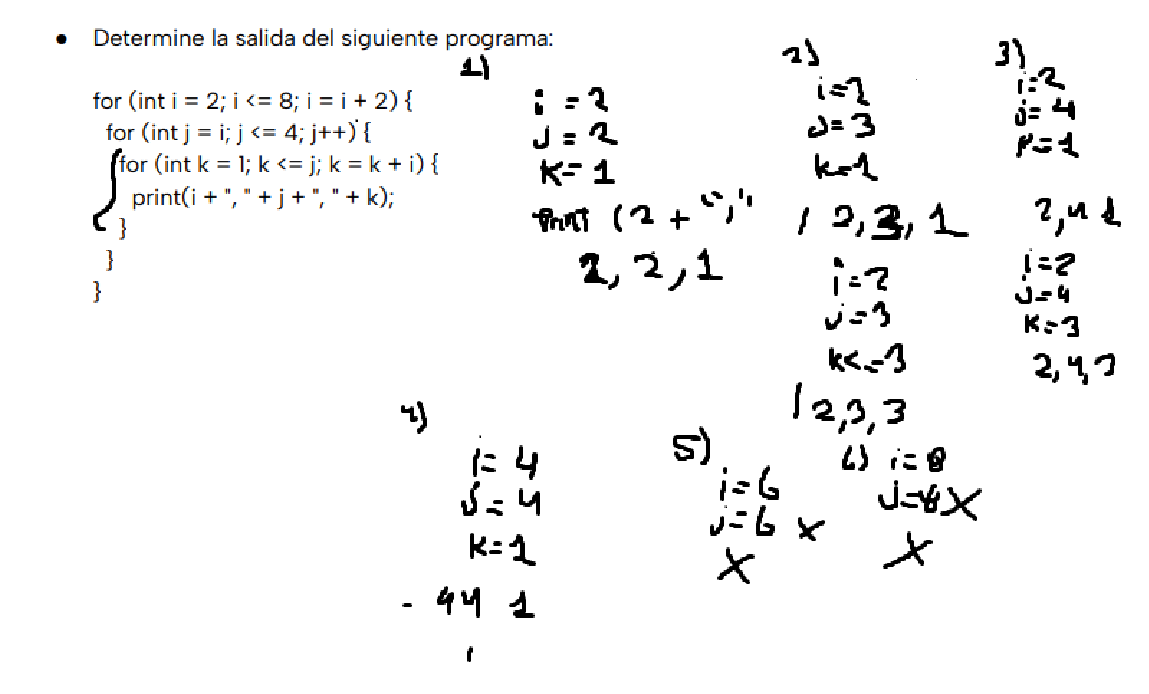 • Determine la salida del siguiente programa:
for (int i = 2; i <= 8; i = i + 2) {
for (int j = i; j <= 4; j++) {
for (int k = 1; k <= j; k = k + i) {
print(i + ", " + j + ", " + k);
}
}
}
1)
i = 2
J = 2
K = 1
Print (2 + ","
2, 2, 1
2)
i=2
J= 3
k=1
/ 2, 3, 1
i=2
j=3
k<=3
/ 2,3,3
3)
i=2
j= 4
k=1
2,4 1
i=2
J=4
K=3
2,4,3
4)
i= 4
J= 4
K=1
- 44 1
5)
i=6
J=6 x
X
6) i=8
J=8X
X